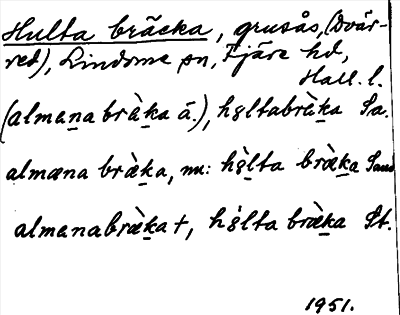 Hulta bräcka, grusås, (Dvär-
red), Lindome sn, Fjäre hd,
Hall. l.
(almena bræ̀ka ä.), hɵltabræ̀ka Sa.
almæna bræ̀ka, nu: hɵ̀lta bræ̀ka Sand
almenabræ̀ka †, hɵ̀lta bræ̀ka St.
1951.